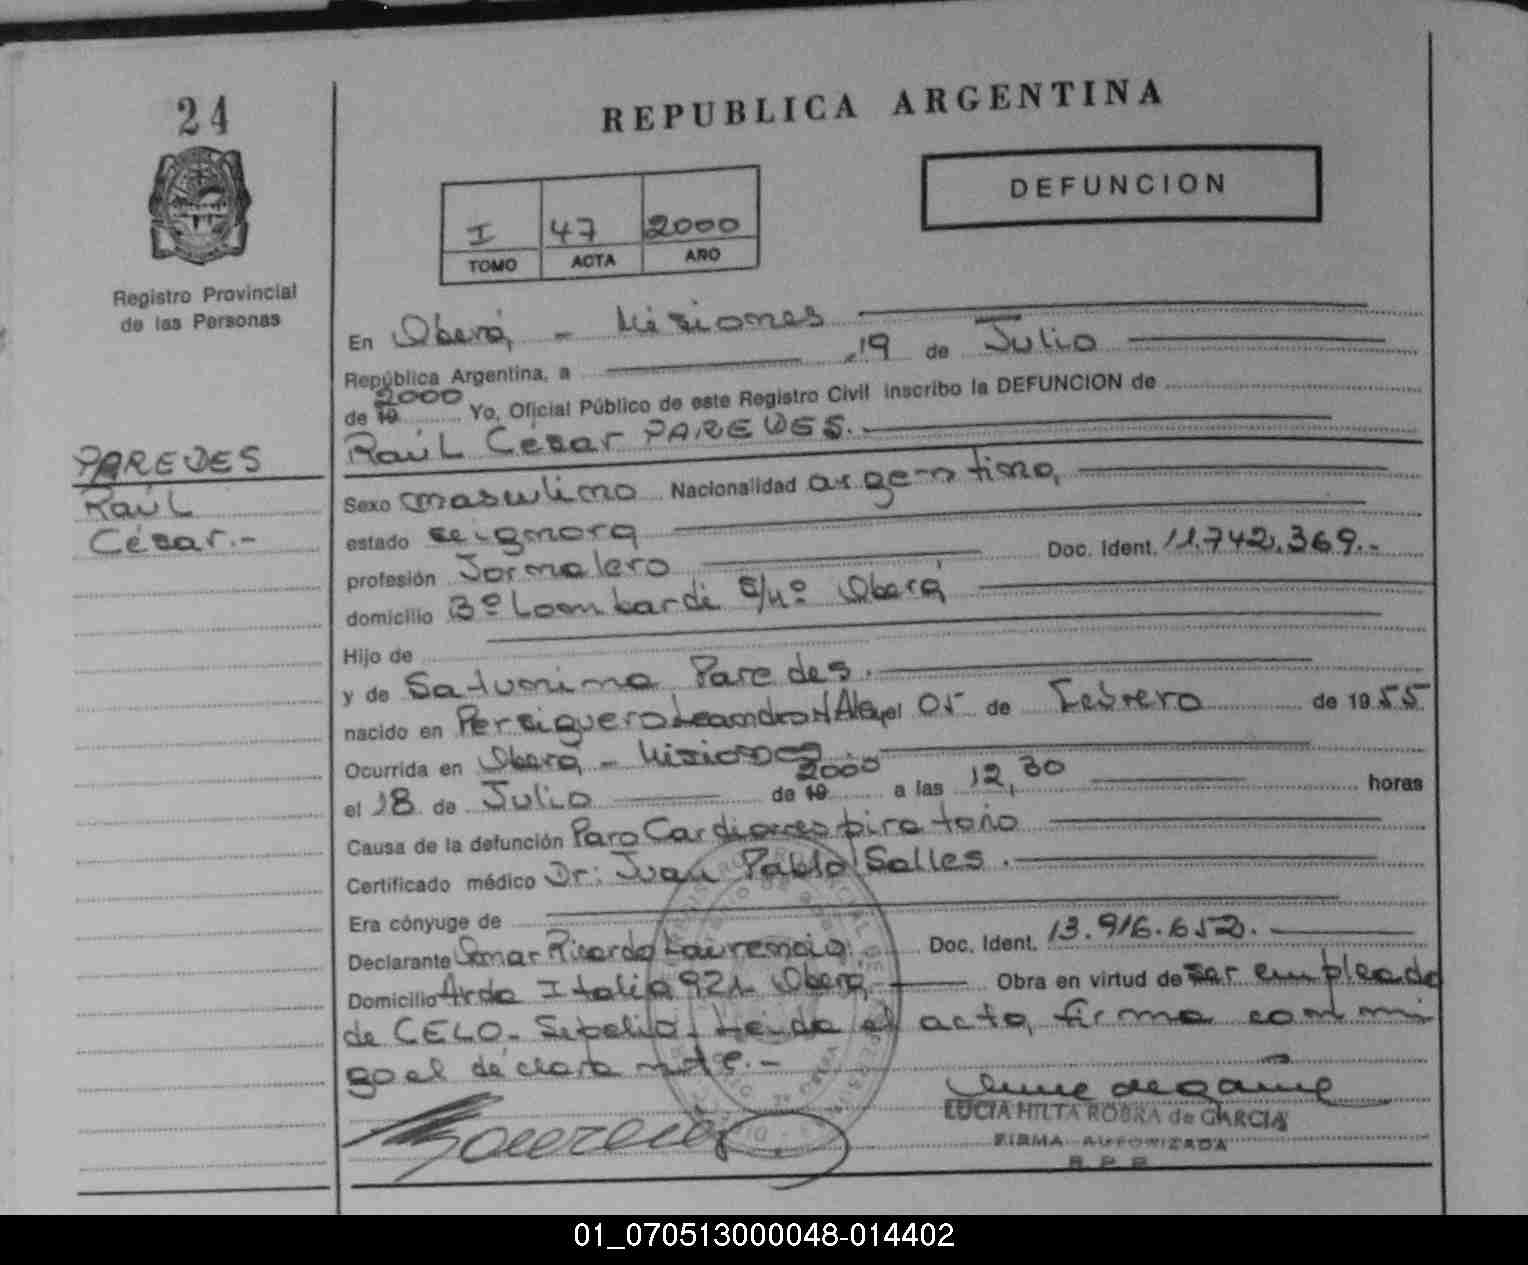 24
REPUBLICA ARGENTINA
DEFUNCION
I 47 2000
TOMO ACTA AÑO
Registro Provincial
de las Personas
PAREDES
Raúl
César.-
En Oberá - Misiones
República Argentina, a 19 de Julio
de 19 2000 Yo, Oficial Público de este Registro Civil inscribo la DEFUNCION de
Raúl Cesar PAREDES.
Sexo masculino Nacionalidad argentino,
estado se ignora
profesión Jornalero Doc. Ident. 11.742.369.-
domicilio Bº Lombardi S/Nº Oberá
Hijo de
y de Saturnina Paredes.
nacido en Persiguero Leandro N Alem el 05 de Febrero de 1955
Ocurrida en Oberá - Misiones
el 18 de Julio de 19 2000 a las 12,30 horas
Causa de la defunción Paro Cardiorrespiratorio
Certificado médico Dr: Juan Pablo Salles.
Era cónyuge de
Declarante Omar Ricardo Laurencio, Doc. Ident. 13.916.652.
Domicilio Avda Italia 921 Oberá, Obra en virtud de ser empleado
de CELO - Sepelio - Leida el acta, firma conmi
go el declarante.-
LUCIA HILTA ROBRA de GARCIA
FIRMA AUTORIZADA
R. P. P.
01_070513000048-014402